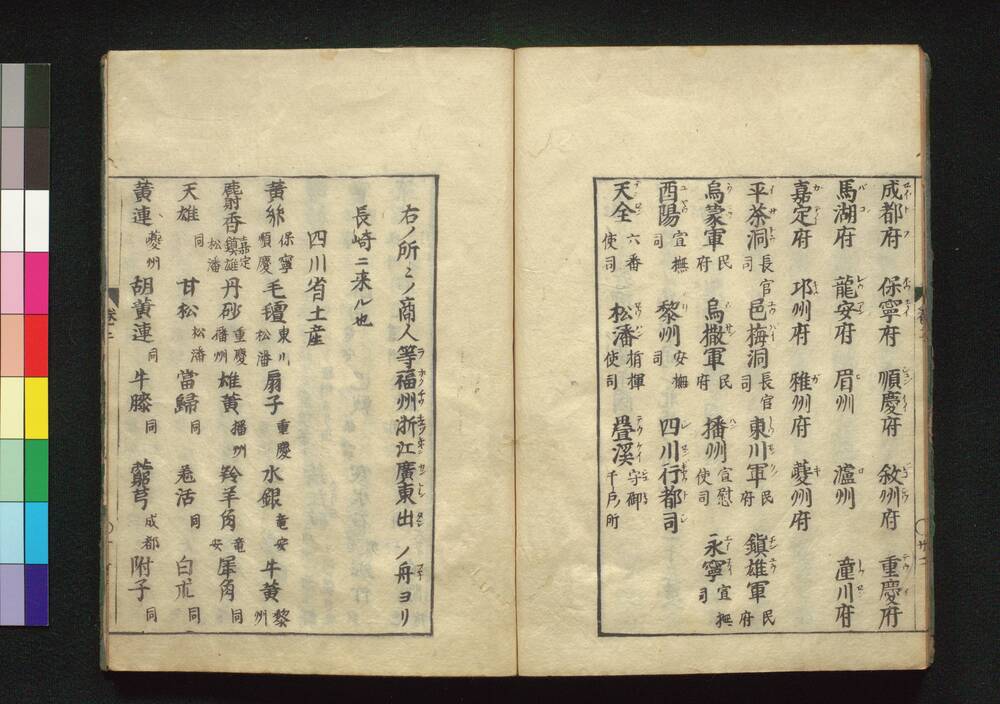 成都府 保寧府 順慶府 敘州府 重慶府
馬湖府 龍安府 眉州 瀘州 潼川府
嘉定府 邛州府 雅州府 夔州府
平茶洞長官司 邑梅洞長官司 東川軍民府 鎮雄軍民府
烏蒙軍民府 烏撒軍民府 播州宣慰使司 永寧宣撫司
酉陽宣撫司 黎州安撫司 四川行都司
天全六番使司 松潘指揮使司 疊溪守御千戸所
右ノ所々ノ商人等福州浙江廣東出ノ舟ヨリ
長崎ニ来ル也
四川省土産
黄糸保寧順慶 毛氊東川松潘 扇子重慶 水銀竜安 牛黄黎州
麝香嘉定鎮雄松潘 丹砂重慶播州 雄黄播州 羚羊角竜安 犀角同
天雄同 甘松松潘 當歸同 巻活同 白朮同
黄連夔州 胡黄連同 牛膝同 芎成都 附子同